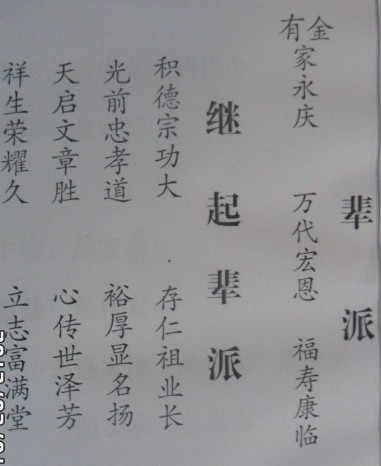 辈派
金有家永庆 万代宏恩 福寿康临
继起辈派
积德宗功大 存仁祖业长
光前忠孝道 裕厚显名扬
天启文章胜 心传世泽芳
祥生荣耀久 立志富满堂